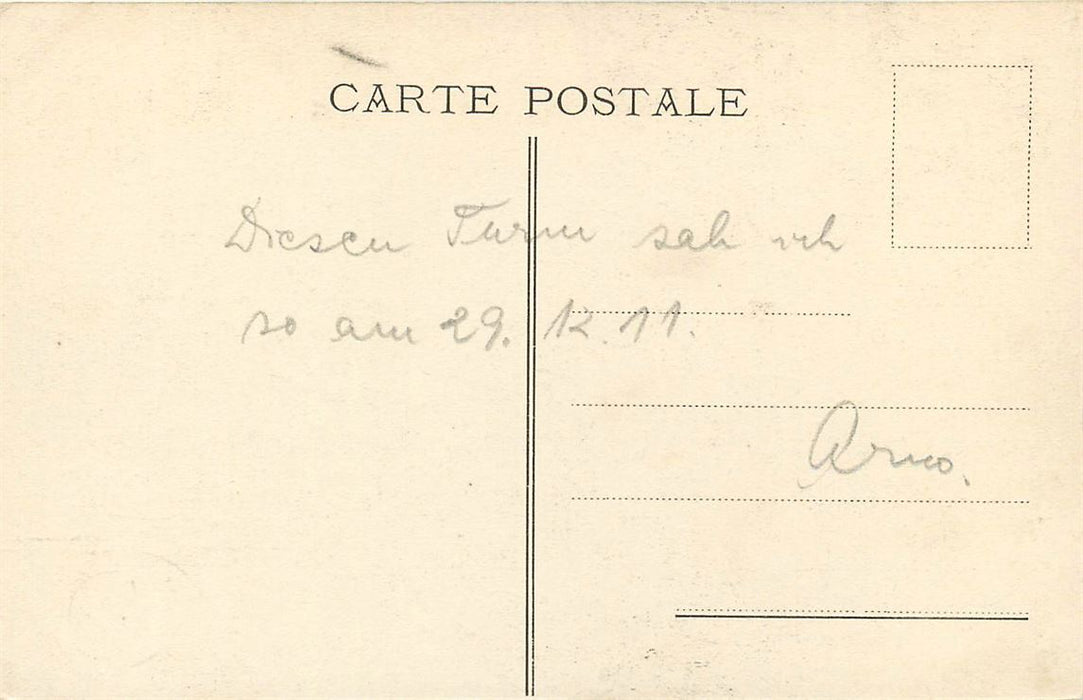 CARTE POSTALE
Diesen Turm sah ich
so am 29. 12. 11.
Arno.